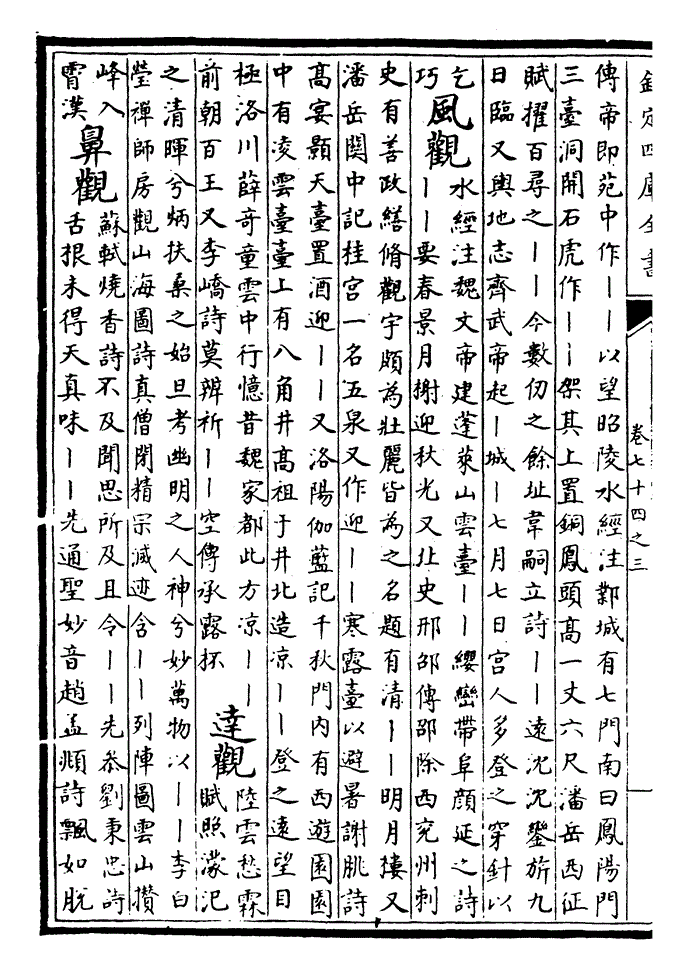 欽定四庫全書
卷七十四之三
傳帝即苑中作丨丨以望昭陵水經注鄴城有七門南曰鳳陽門
三臺洞開石虎作丨丨架其上置銅鳳頭高一丈六尺潘岳西征
賦擢百尋之丨丨今數仞之餘址韋嗣立詩丨丨遠沈沈鑾旂九
日臨又輿地志齊武帝起丨城丨七月七日宮人多登之穿針以
乞
巧
風觀
水經注魏文帝建蓬萊山雲臺丨丨纓巒帶阜顏延之詩
丨丨要春景月榭迎秋光又北史邢邵傳邵除西兗州刺
史有善政繕脩觀宇頗為壯麗皆為之名題有清丨丨明月樓又
潘岳關中記桂宮一名五泉又作迎丨丨寒露臺以避暑謝朓詩
高宴顥天臺置酒迎丨丨又洛陽伽藍記千秋門內有西遊園園
中有凌雲臺臺上有八角井高祖于井北造凉丨丨登之遠望目
極洛川薛奇童雲中行憶昔魏家都此方凉丨丨
前朝百王又李嶠詩莫辨祈丨丨空傳承露杯
達觀
陸雲愁霖
賦照濛汜
之清暉兮炳扶桑之始旦考幽明之人神兮妙萬物以丨丨李白
瑩禪師房觀山海圖詩真僧閉精宗滅迹含丨丨列陣圖雲山攢
峰入
霄漢
鼻觀
蘇軾燒香詩不及聞思所及且令丨丨先叅劉秉忠詩
舌根未得天真味丨丨先通聖妙音趙孟頫詩飄如脫